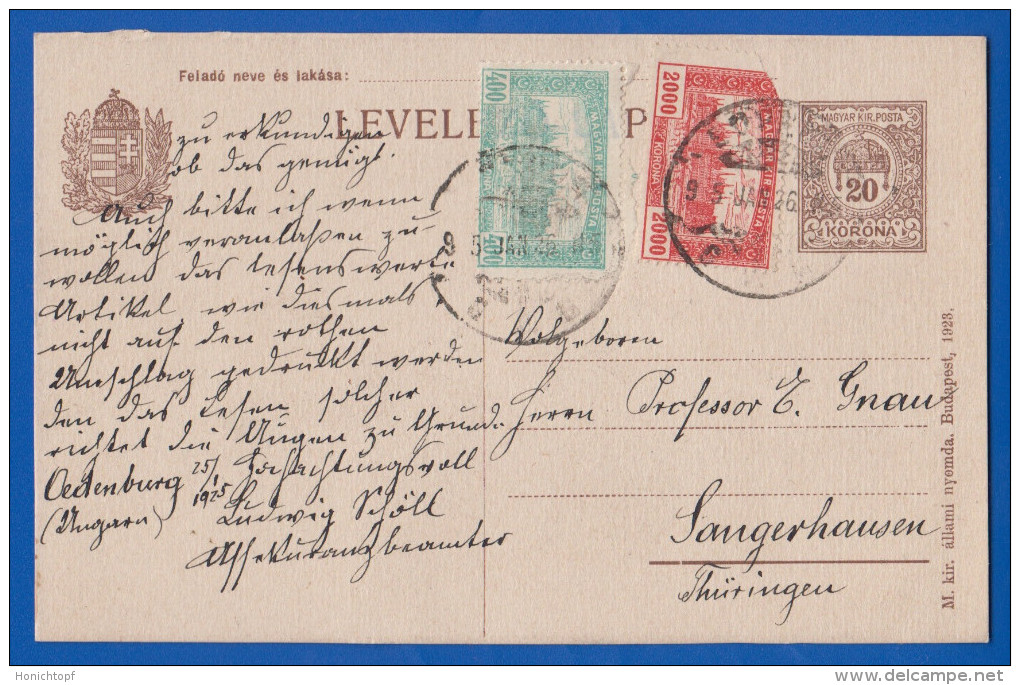 Feladó neve és lakása:
LEVELE P
MAGYAR KIR. POSTA
20
KORONA
400
MAGYAR KIR. POSTA
KORONA
400
2000
MAGYAR KIR. POSTA
KORONA
2000
JAN. 26
JAN. 26
zu erkundigen
ob das genügt.
Auch bitte ich wenn
möglich veranlaßen zu
wollen das lesenswerte
Artikel, wie diesmals
nicht auf den rothen
Umschlag gedruckt werden
den das Lesen solcher
richtet die Augen zu Grund.
Oedenburg 25/1 1925 Hochachtungsvoll
(Ungarn) Ludwig Schöll
Assekuranzbeamter
Wolgeboren
Herrn Professor E. Gnau
Sangerhausen
Thüringen
M. kir. állami nyomda. Budapest, 1923.
Honichtopf
www.delcampe.net